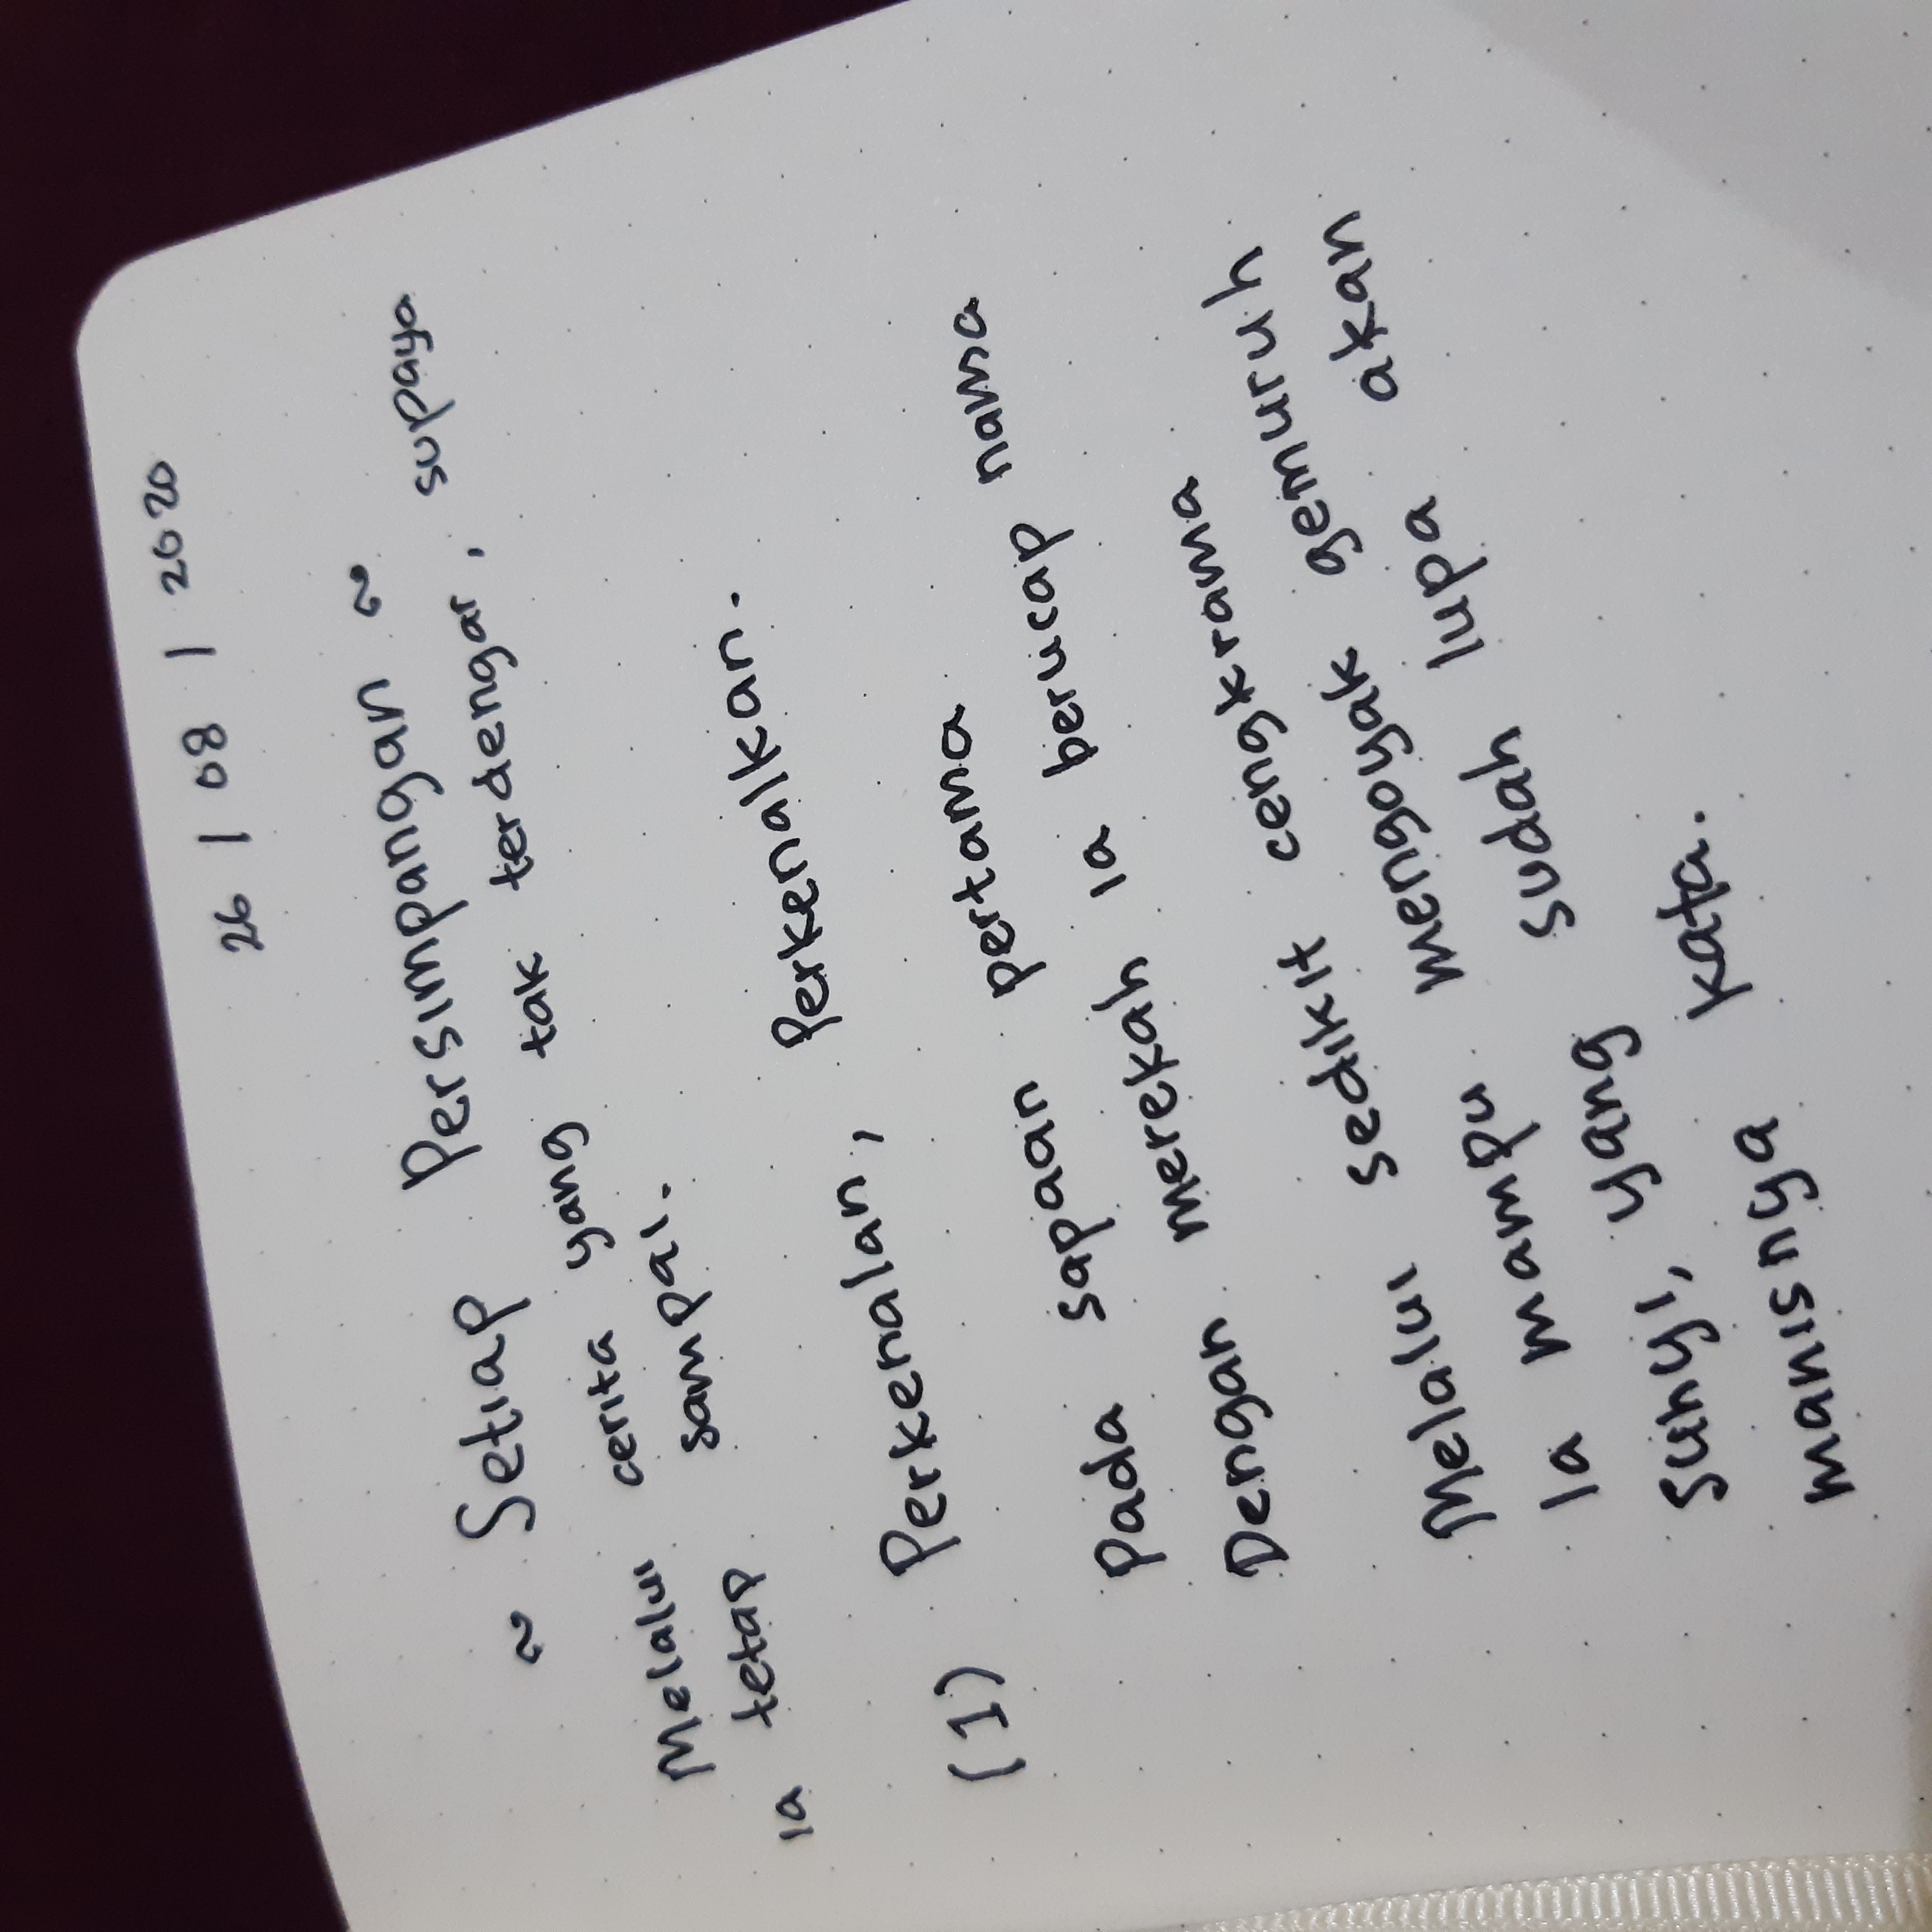 26 / 08 / 2020
~ Setiap Persimpangan ~
Melalui cerita yang tak terdengar, supaya
ia tetap sampai.
(1) Perkenalan, Perkenalkan.
Pada sapaan pertama
Dengan merekah ia berucap nama
Melalui sedikit cengkrama
Ia mampu mengoyak gemuruh
Sunyi, yang sudah lupa akan
manisnya kata.